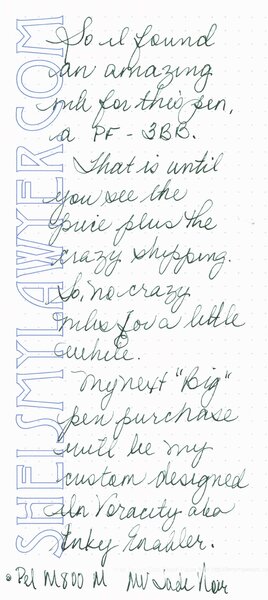 SHEISMYLAWYER.COM
So I found
an amazing
ink for this pen,
a PF - 3BB.
That is until
you see the
price plus the
crazy shipping.
So, no crazy
inks for a little
while.
My next "Big"
pen purchase
will be my
custom designed
Ink Voracity aka
Inky Enabler.
Pel M800 M